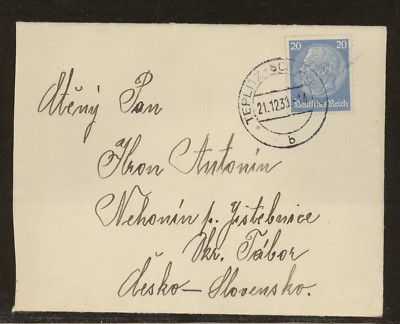 20 20
Deutsches Reich
TEPLITZ-SC
21.12.38
b
Ctěný Pan
Hron Antonín
Nehonín p. Jistebnice
Okr. Tábor
Česko-Slovensko.